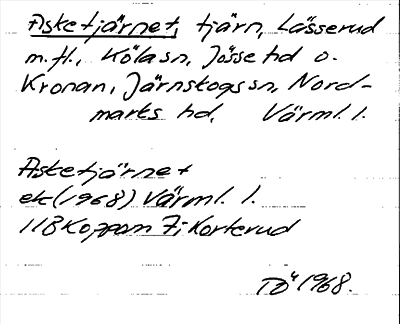 Asketjärnet, tjärn, Lässerud
m.fl., Köla sn, Jösse hd o.
Kronan, Järnskogs sn, Nord-
marks hd, Värml. l.
Asketjärnet
ek (1968) Värml. l.
11B Koppom 7i Korterud
TÖ 1968.